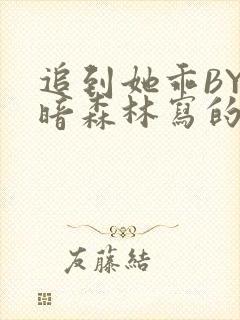 追到她乖BY
暗森林寫的
友藤結